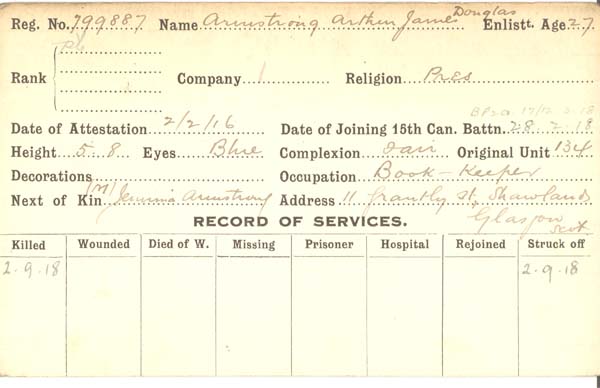 Douglas
Reg. No. 799887 Name Armstrong Arthur James Enlistt. Age 27
Rank Company Religion Pres
Date of Attestation 2/2/16 Date of Joining 15th Can. Battn. 28 2 18
Height 5 8 Eyes Blue Complexion Fair Original Unit 134
Decorations Occupation Book-Keeper
Next of Kin (M) Jemima Armstrong Address 11 Grantly St, Shawlands
Glasgow
Scot.
RECORD OF SERVICES.
Killed Wounded Died of W. Missing Prisoner Hospital Rejoined Struck off
2.9.18 2.9.18